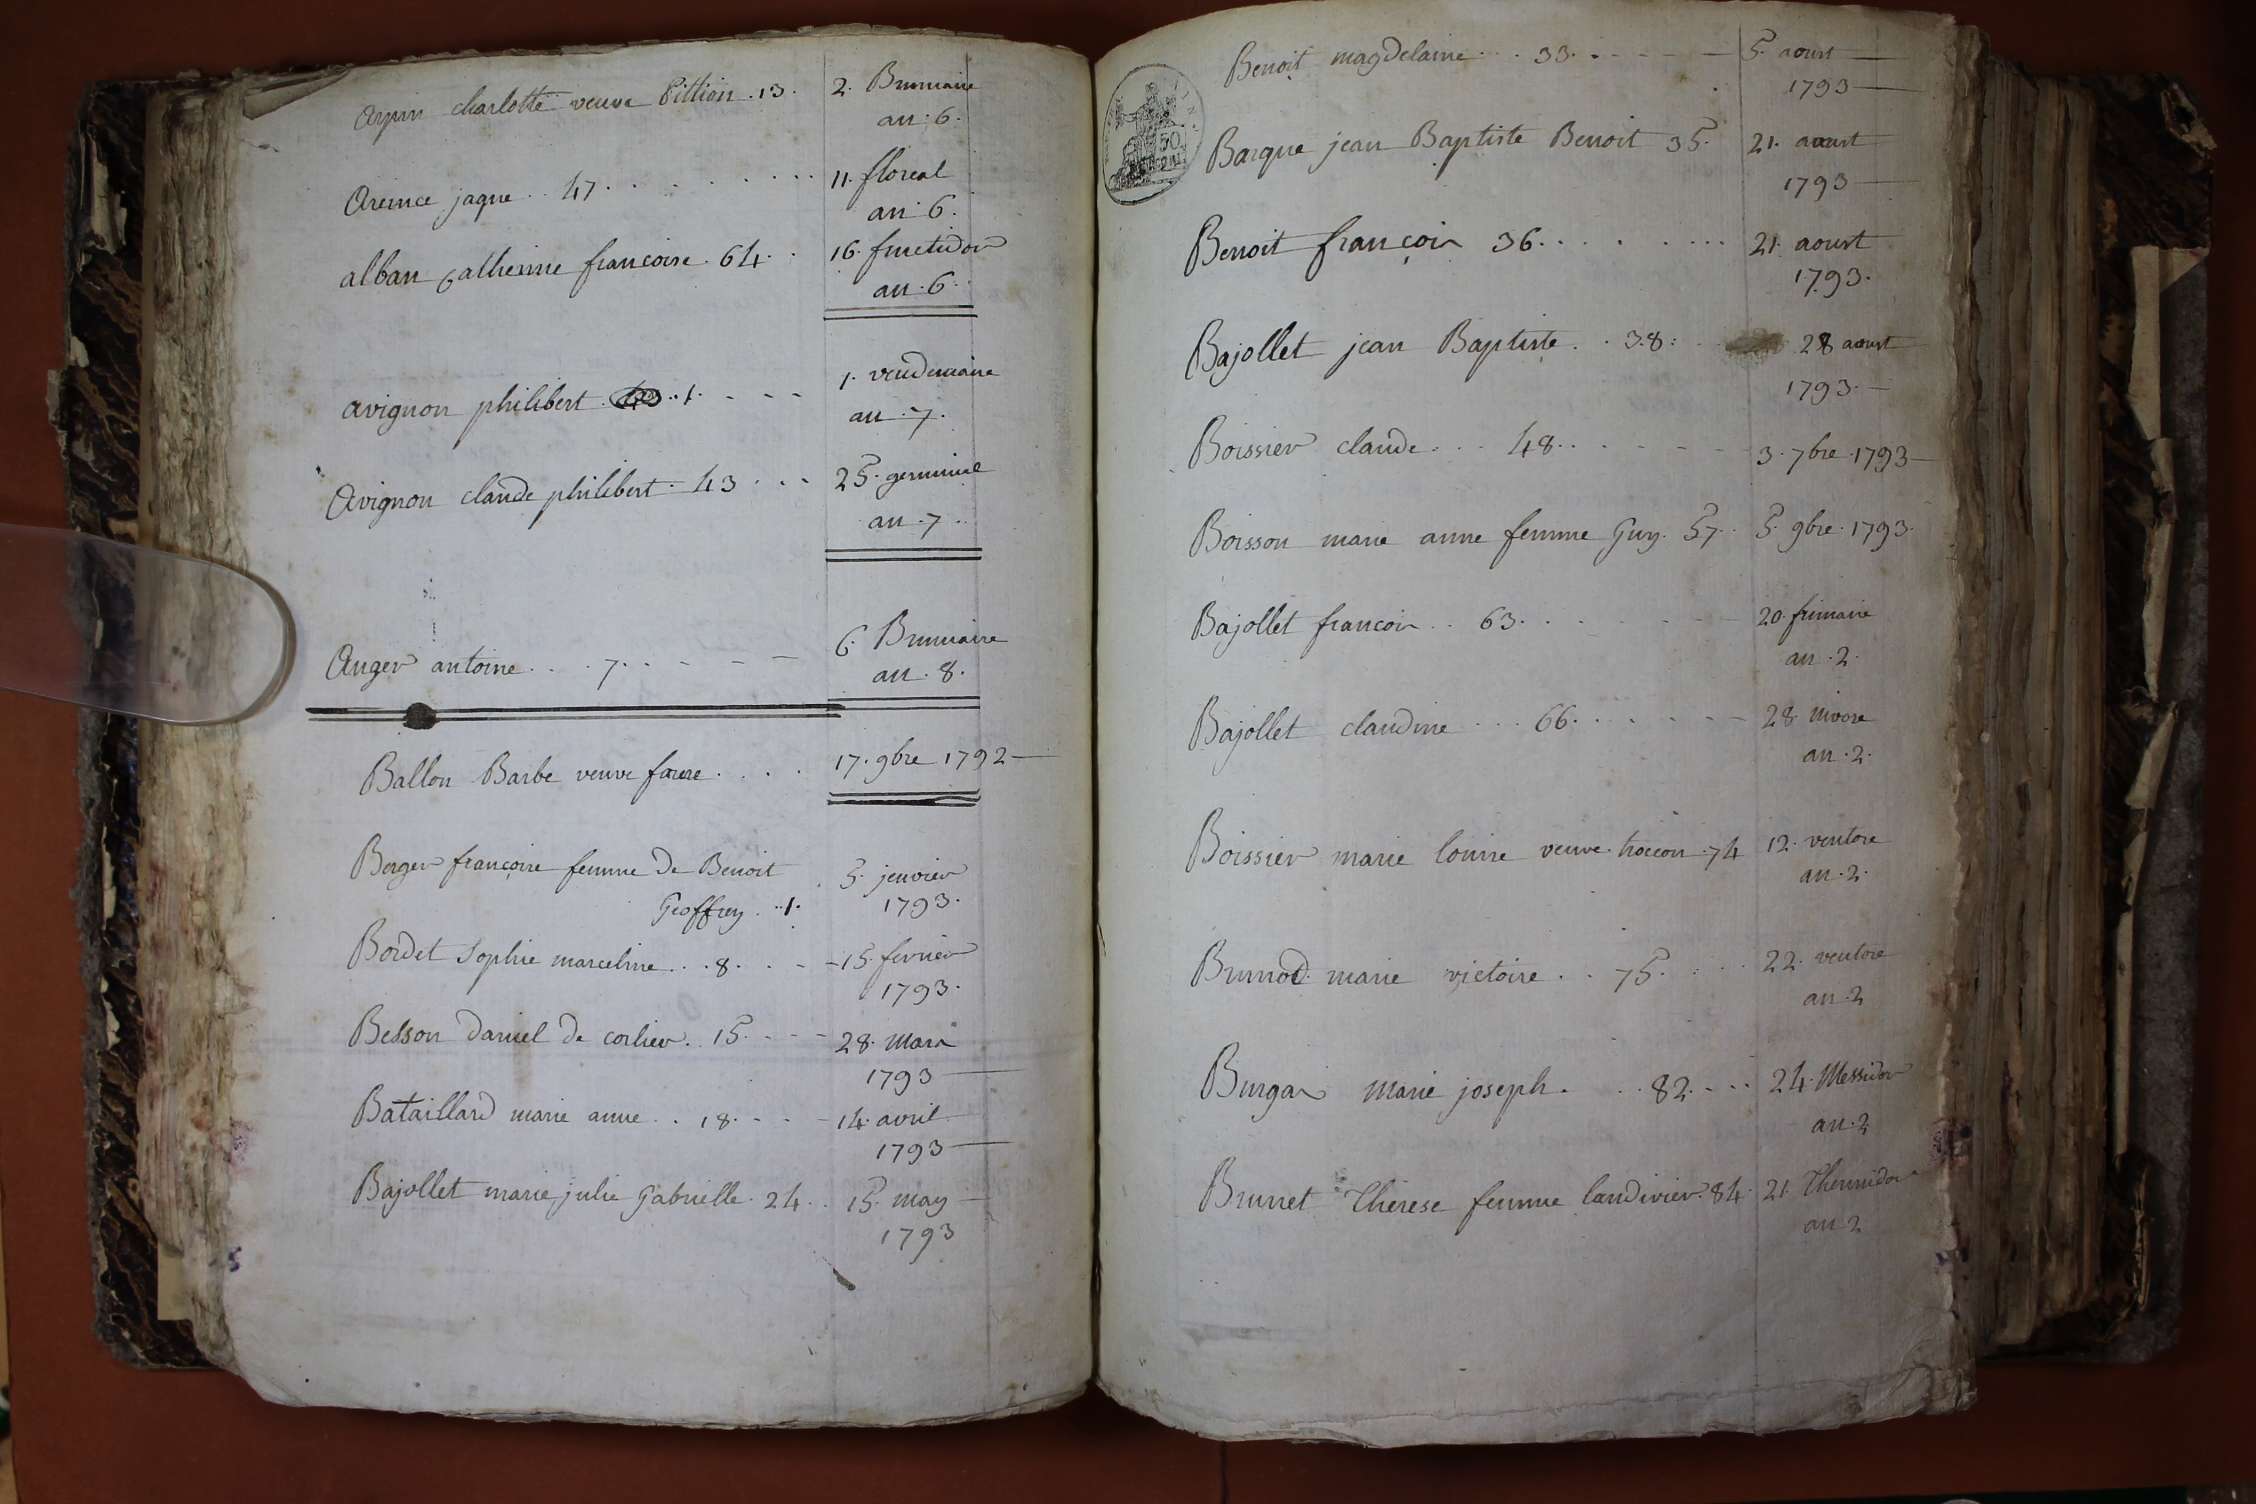 Arpin charlotte veuve Pittion . 13 . 2. Brumaire
an . 6 .
jaque . . 47 . . . . . . . . . 11. floreal
an . 6 .
alban Catherine francoise . 64 . . 16. fructidor
an . 6 . .
avignon philibert . 43 . . 1 . - - - 1. vendemiaire
an . 7 .
Avignon claude philibert . 43 . . . 25. germinal
an . 7 . .
Anger antoine . . . 7 . . - - - 6. Brumaire
an . 8 .
Ballon Barbe veuve faure . . . . 17. 9bre 1792
Berger françoise femme De Benoit . 5. jenvier
Geoffrey . . 1 . 1793 .
Bordet Sophie marceline . . 8 . . - - 15. fevrier
1793 .
Besson Daniel De corlier . 15 . - - - 28. Mars
1793
Bataillard marie anne . . 18 . - - - 14. avril
1793
Bajollet marie julie Gabrielle . 24 . . 15. may
1793
Benoit magdelaine . . . 33 . . - - - - 5. aoust
1793
Barque jean Baptiste Benoit 35 . 21. aoust
1793
Benoit françois 36 . . . . . . . . 21. aoust
1793 .
Bajollet jean Baptiste . . 38 : 28 aoust
1793 .
Boissier claude . . . 48 . . - - - - 3. 7bre . 1793
Boisson marie anne femme Guy . 57 . . 5. 9bre . 1793 .
Bajollet francois . . 63 . . - - - - 20. frimaire
an . 2 .
Bajollet claudine . . . 66 . . . - - - 28. Nivose
an . 2 .
Boissier marie louise veuve . 74 12. ventose
an . 2 .
Brunod marie victoire . . 75 . . . . 22. ventose
an . 2
Burgas Marie joseph . . . 82 . - . . 24. Messidor
an . 2
Brunet Thérese femme landivier . 84 . 21. Thermidor
an 2